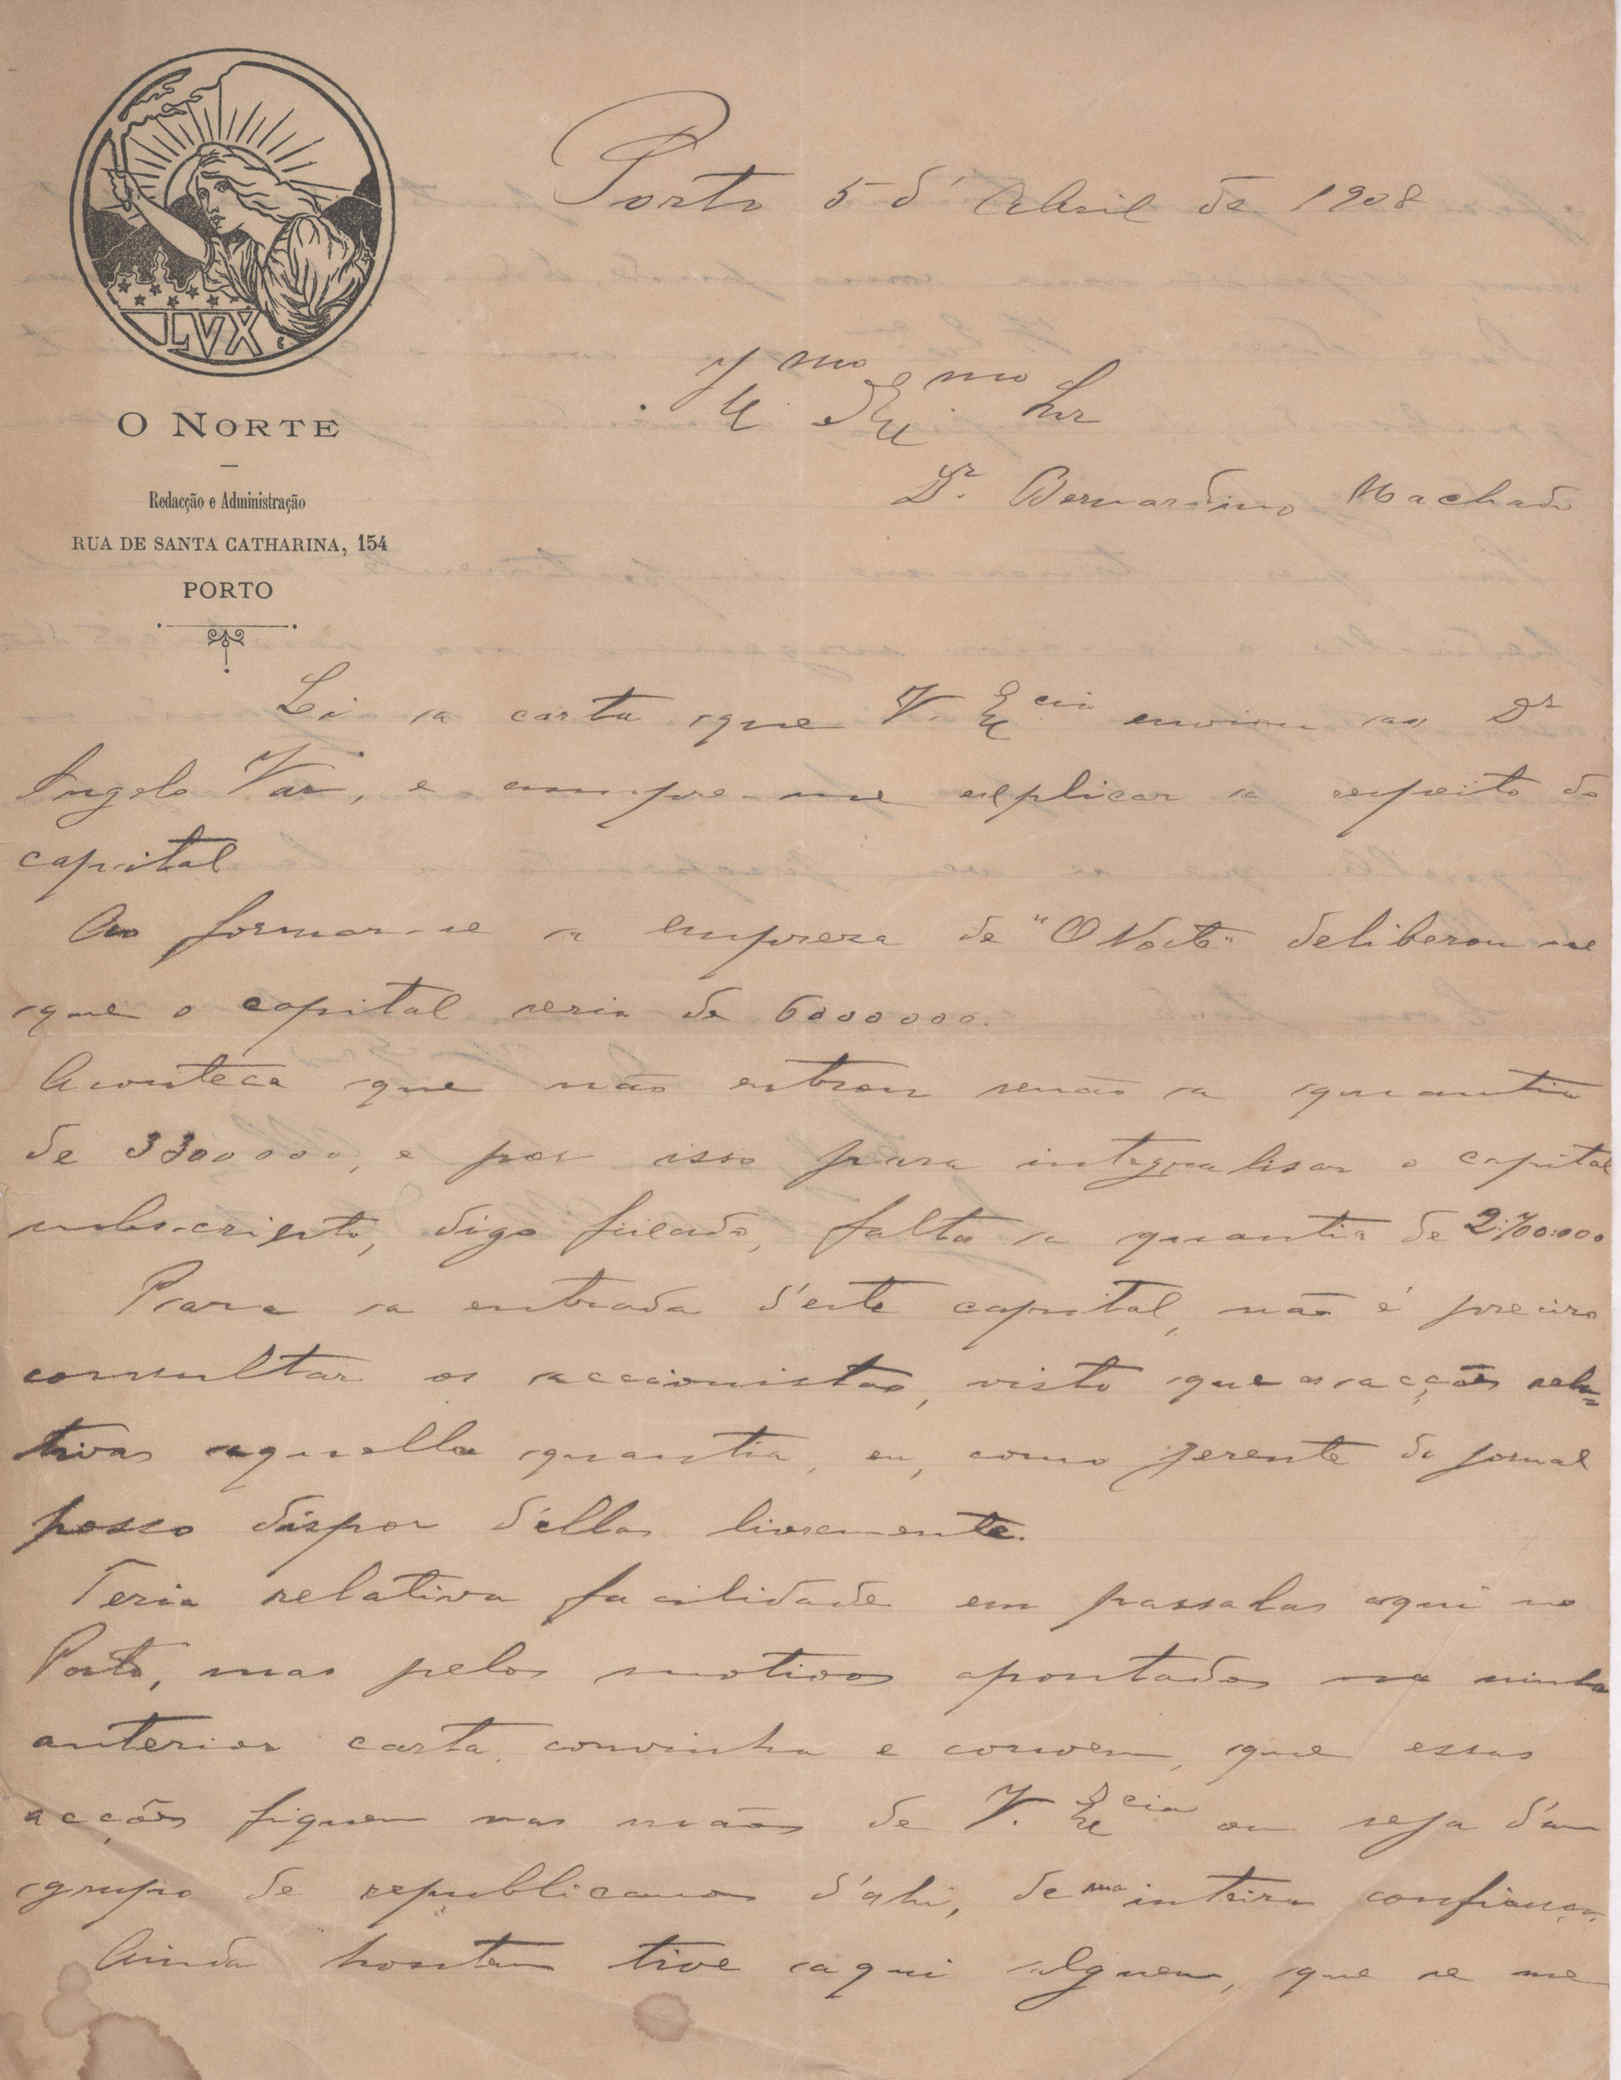 LVX
O NORTE
Redacção e Administração
RUA DE SANTA CATHARINA, 154
PORTO
Porto 5 d'Abril de 1908
Ill.mo Ex.mo Snr
Dr. Bernardino Machado
Li a carta que V. Ex.cia enviou ao Dr
Angelo Vaz, e cumpre-me explicar a respeito do
capital
Ao formar-se a empreza de "O Norte" deliberou-se
que o capital seria de 6000000.
Aconteca que não entrou senão a quantia
de 3300000, e por isso para integralisar o capital
subscripto, digo fixado, falta a quantia de 2:700:000
Para a entrada d'este capital, não é preciso
consultar os accionistas, visto que as acções rela-
tivas aquella quantia, eu, como gerente do jornal
posso dispor d'ellas livremente.
Teria relativa facilidade em passalas aqui no
Porto, mas pelos motivos apontados na minha
anterior carta, convinha e convem, que essas
acções fiquem nas mãos de V. Ex.cia ou seja d'um
grupo de republicanos d'ahi, de sua inteira confiança.
Ainda hontem tive aqui alguem, que se me